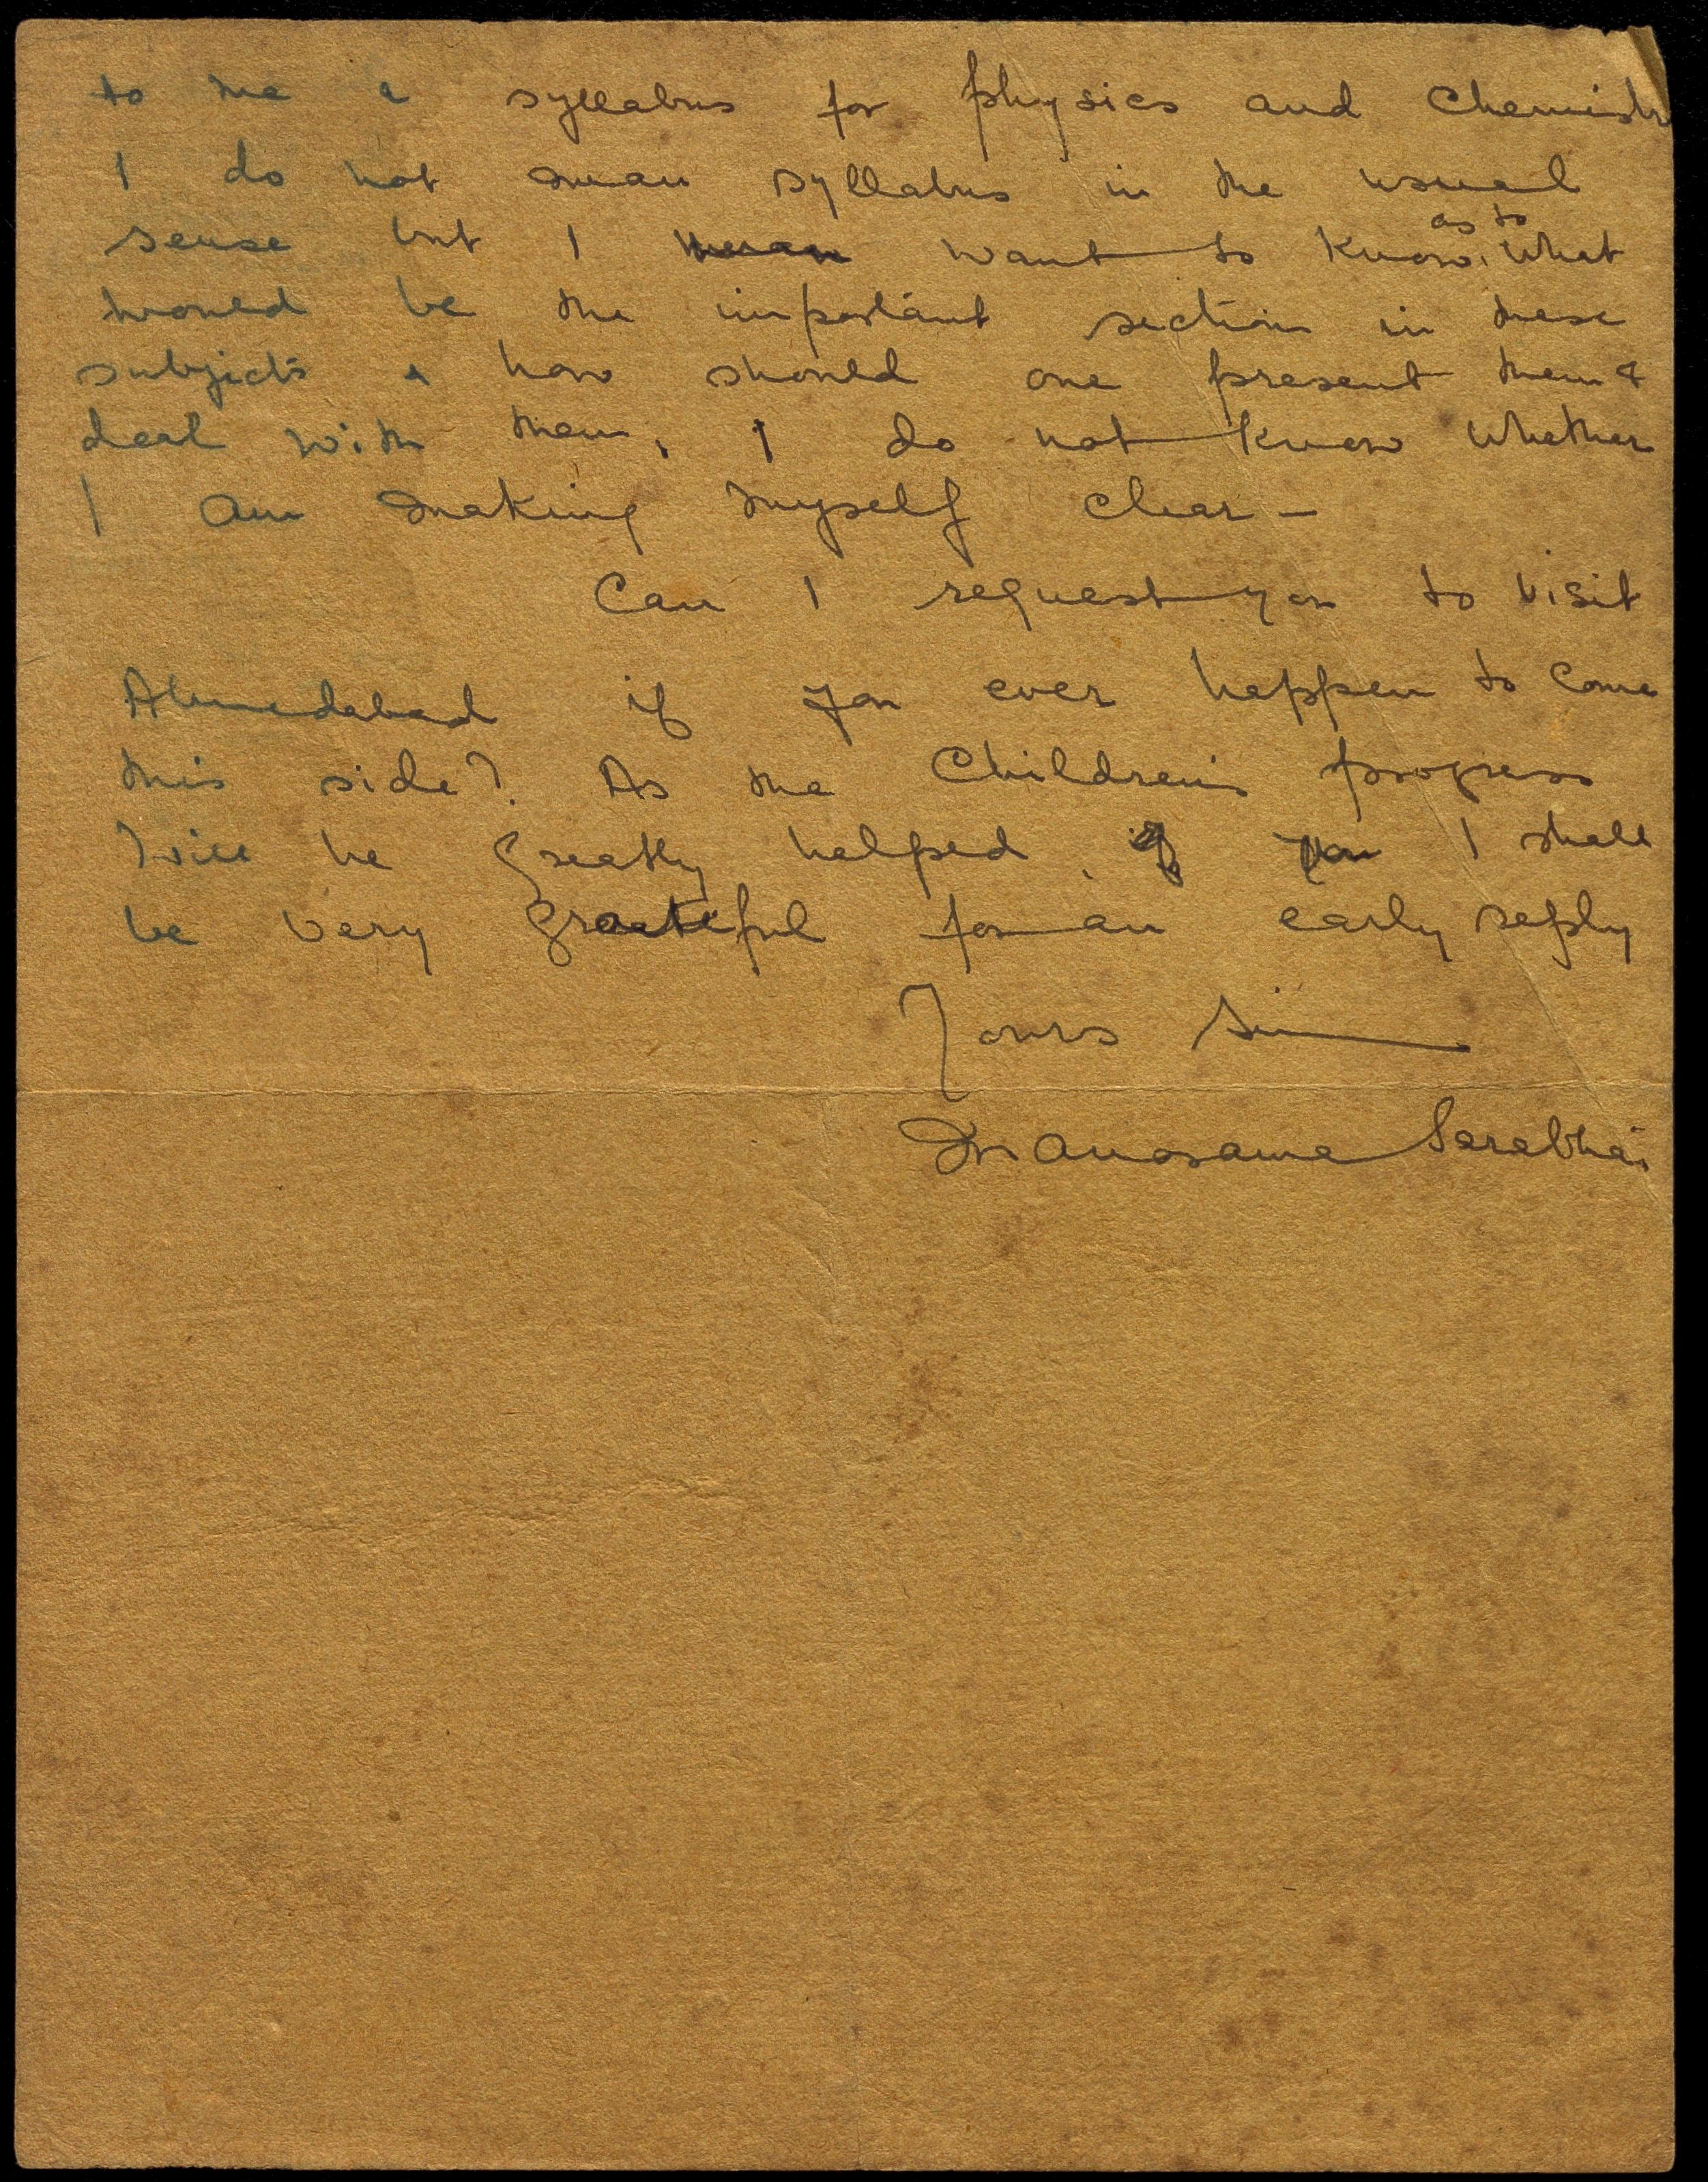 to me a syllabus for physics and Chemistr
I do not mean syllabus in the usual
sense but I mean want to know as to what
would be the important section in these
subjects & how should one present them &
deal with them, I do not know whether
I am making myself clear –
Can I request you to visit
Ahmedabad if you ever happen to come
this side? As the Children's progress
will be greatly helped if you I shall
be very grateful for an early reply
Yours Sin
Manorama Sarabhai